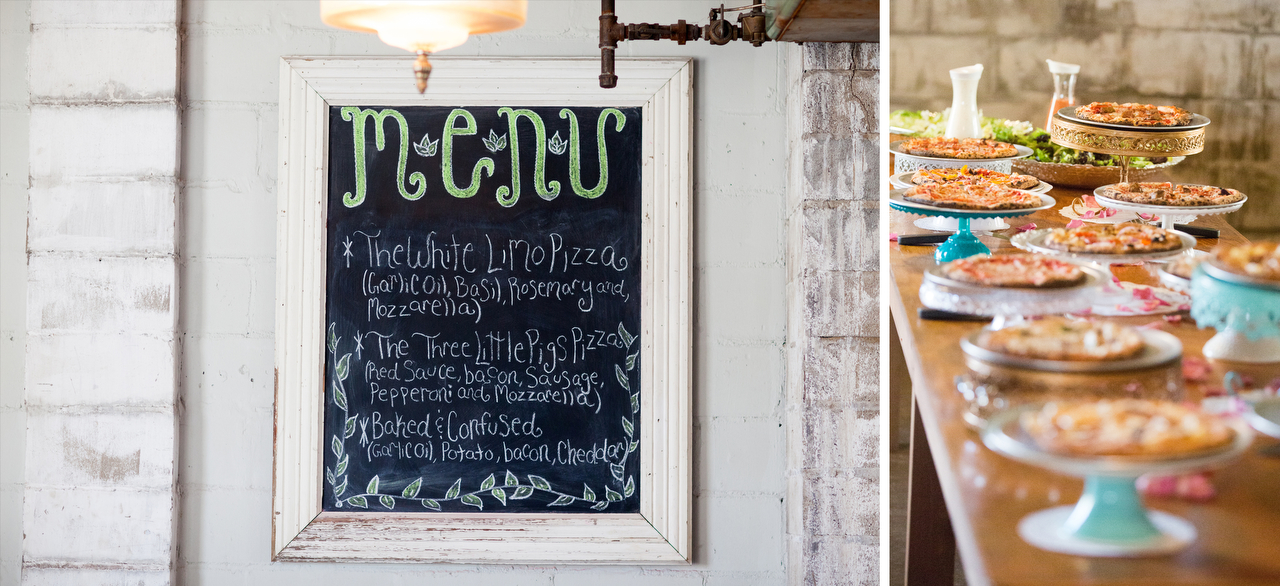 menu
* The White Limo Pizza
(Garlic Oil, Basil, Rosemary and,
Mozzarella)
* The Three Little Pigs Pizza
(Red Sauce, bacon, Sausage,
Pepperoni and Mozzarella)
* Baked & Confused
(Garlic Oil, Potato, bacon, Cheddar)